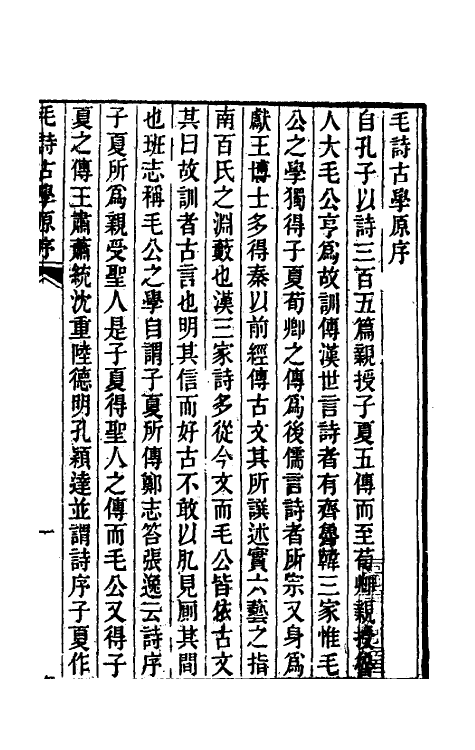 毛詩古學原序
自孔子以詩三百五篇親授子夏五傳而至荀卿親授
人大毛公亨爲故訓傳漢世言詩者有齊魯韓三家惟毛
公之學獨得子夏荀卿之傳爲後儒言詩者所宗又身爲
獻王博士多得秦以前經傳古文其所譔述實六藝之指
南百氏之淵藪也漢三家詩多從今文而毛公皆依古文
其曰故訓者古言也明其信而好古不敢以肊見厠其間
也班志稱毛公之學自謂子夏所傳鄭志答張逸云詩序
子夏所爲親受聖人是子夏得聖人之傳而毛公又得子
夏之傳王肅蕭統沈重陸德明孔穎達並謂詩序子夏作
毛詩古學原序
一